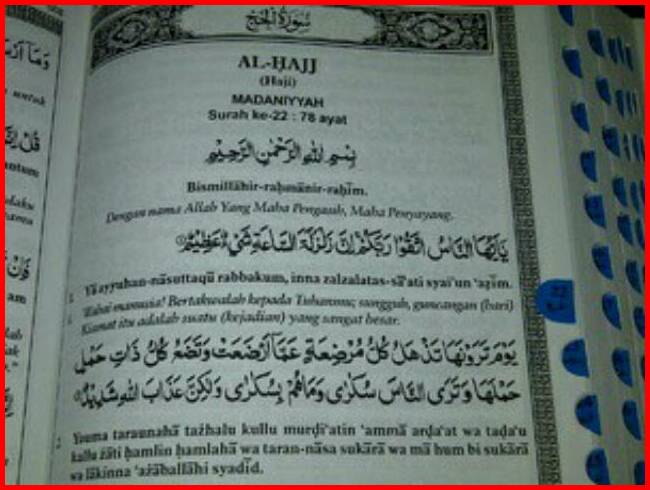 سُورَةُ الْحَجّ
AL-ḤAJJ
(Haji)
MADANIYYAH
Surah ke-22 : 78 ayat
بِسْمِ اللهِ الرَّحْمٰنِ الرَّحِيْمِ
Bismillāhir-raḥmānir-raḥīm.
Dengan nama Allah Yang Maha Pengasih, Maha Penyayang.
يٰٓاَيُّهَا النَّاسُ اتَّقُوْا رَبَّكُمْ اِنَّ زَلْزَلَةَ السَّاعَةِ شَيْءٌ عَظِيْمٌ
1. Yā ayyuhan-nāsuttaqū rabbakum, inna zalzalatas-sā'ati syai'un 'aẓīm.
1. Wahai manusia! Bertakwalah kepada Tuhanmu; sungguh, guncangan (hari)
Kiamat itu adalah suatu (kejadian) yang sangat besar.
يَوْمَ تَرَوْنَهَا تَذْهَلُ كُلُّ مُرْضِعَةٍ عَمَّآ اَرْضَعَتْ وَتَضَعُ كُلُّ ذَاتِ حَمْلٍ
حَمْلَهَا وَتَرَى النَّاسَ سُكٰرٰى وَمَا هُمْ بِسُكٰرٰى وَلٰكِنَّ عَذَابَ اللهِ شَدِيْدٌ
2. Yauma taraunahā tażhalu kullu murḍi'atin 'ammā arḍa'at wa taḍa'u
kullu żāti ḥamlin ḥamlahā wa taran-nāsa sukārā wa mā hum bi sukārā
wa lākinna 'ażāballāhi syadīd.